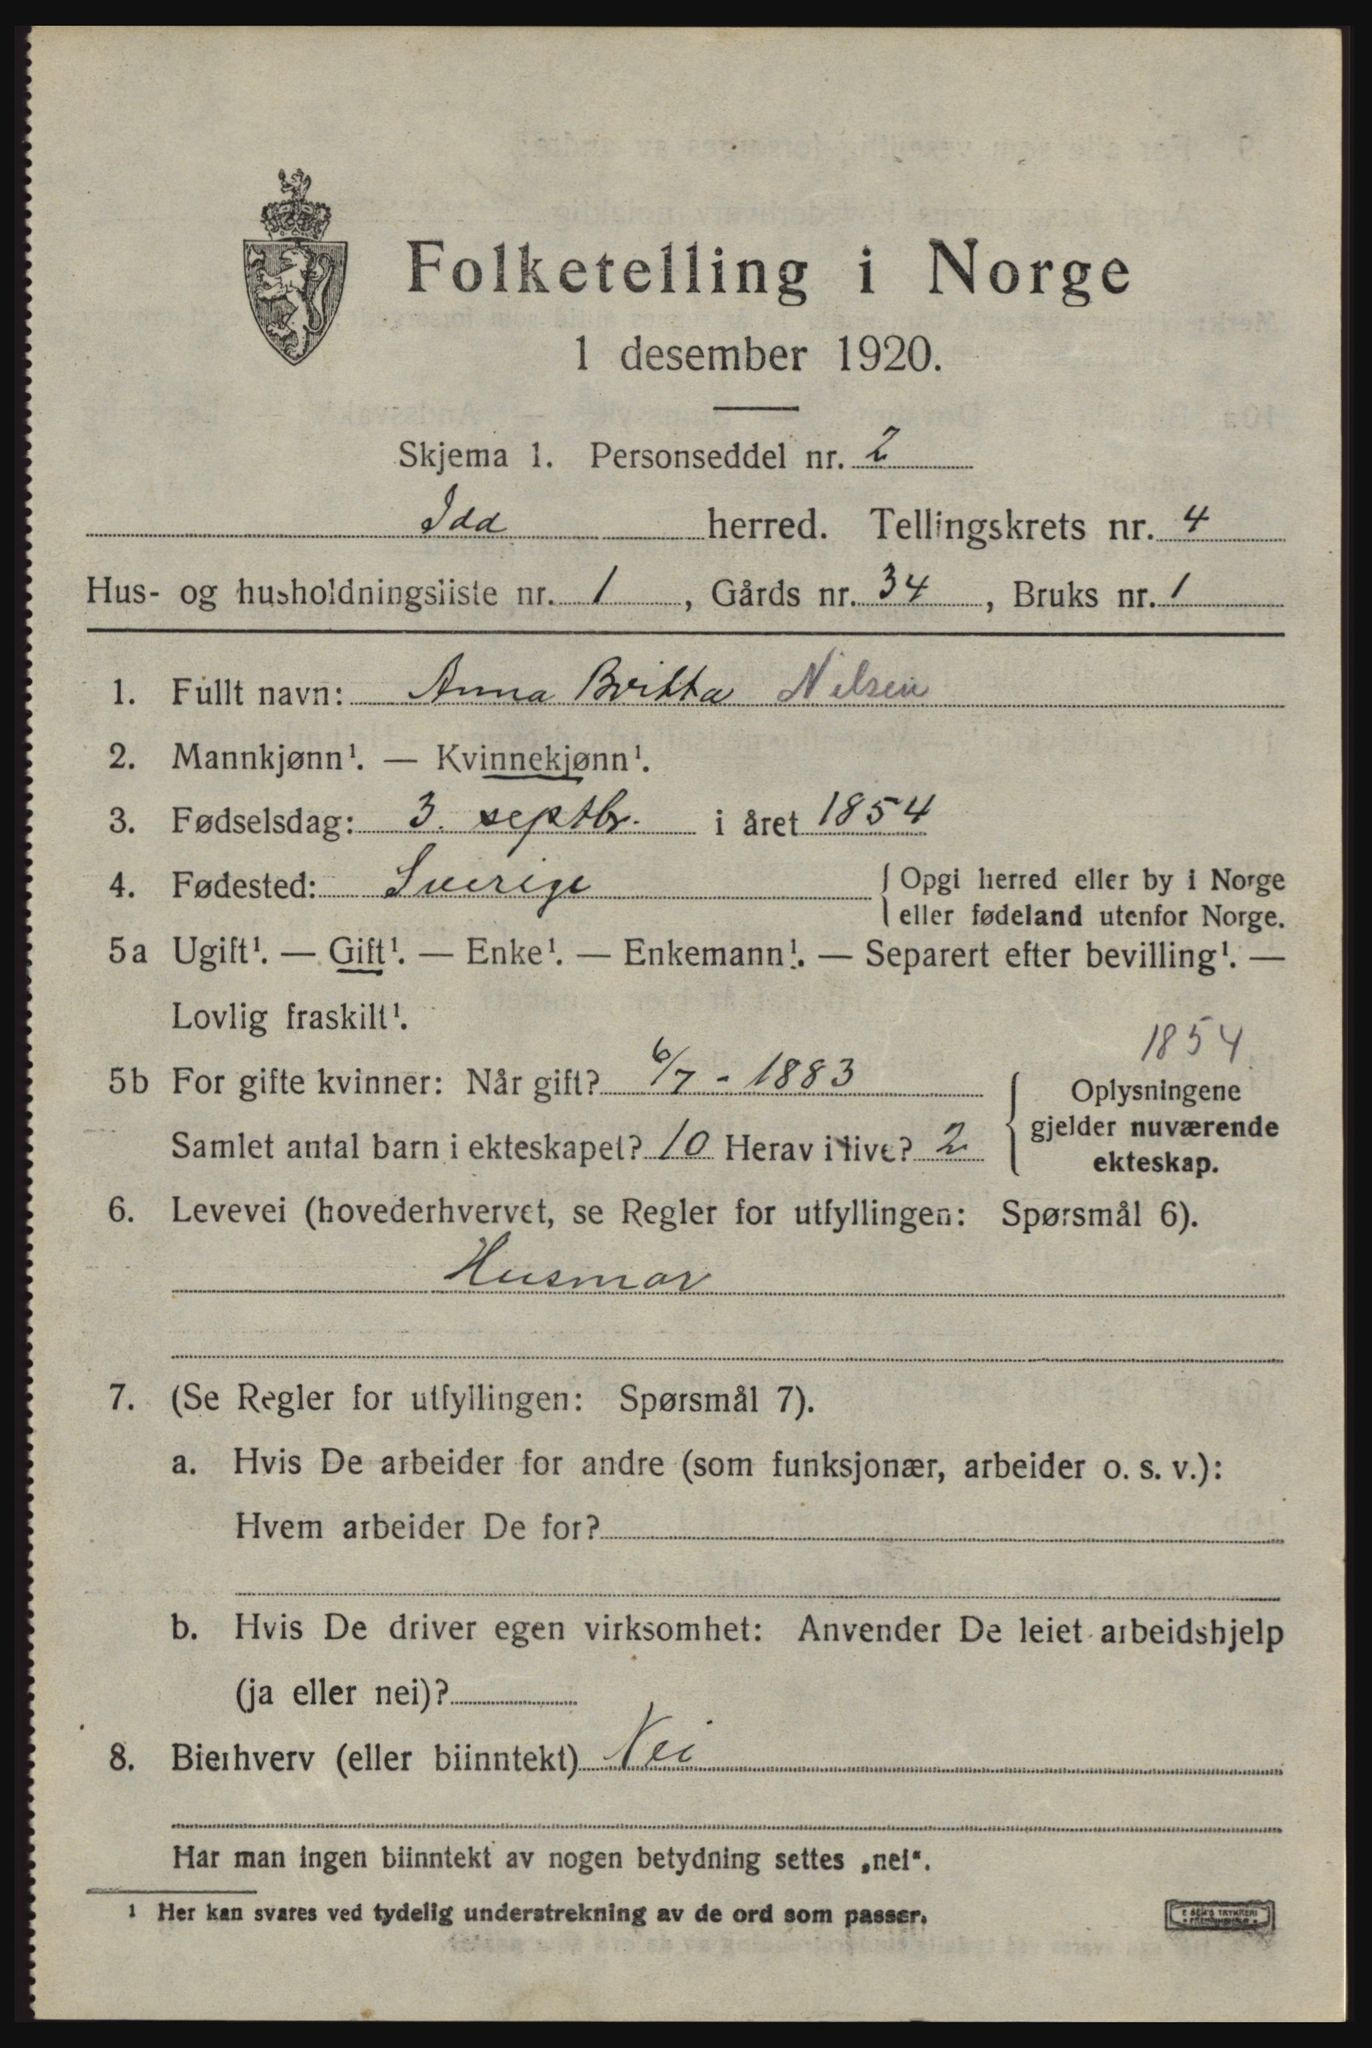 Folketelling i Norge
1 desember 1920.
Skjema 1. Personseddel nr. 2
Idd herred. Tellingskrets nr. 4
Hus- og husholdningsliste nr. 1, Gårds nr. 34, Bruks nr. 1
1. Fullt navn: Anna Britta Nilsen
2. Mannkjønn¹. — Kvinnekjønn¹.
3. Fødselsdag: 3. septbr. i året 1854
4. Fødested: Sverige { Opgi herred eller by i Norge
eller fødeland utenfor Norge.
5a Ugift¹. — Gift¹. — Enke¹. — Enkemann¹. — Separert efter bevilling¹. —
Lovlig fraskilt¹.
1854
5b For gifte kvinner: Når gift? 6/7 - 1883
Samlet antal barn i ekteskapet? 10 Herav i live? 2
{ Oplysningene
gjelder nuværende
ekteskap.
6. Levevei (hovederhvervet, se Regler for utfyllingen: Spørsmål 6).
Husmor
7. (Se Regler for utfyllingen: Spørsmål 7).
a. Hvis De arbeider for andre (som funksjonær, arbeider o. s. v.):
Hvem arbeider De for?
b. Hvis De driver egen virksomhet: Anvender De leiet arbeidshjelp
(ja eller nei)?
8. Bierhverv (eller biinntekt) Nei
Har man ingen biinntekt av nogen betydning settes „nei“.
¹ Her kan svares ved tydelig understrekning av de ord som passer.